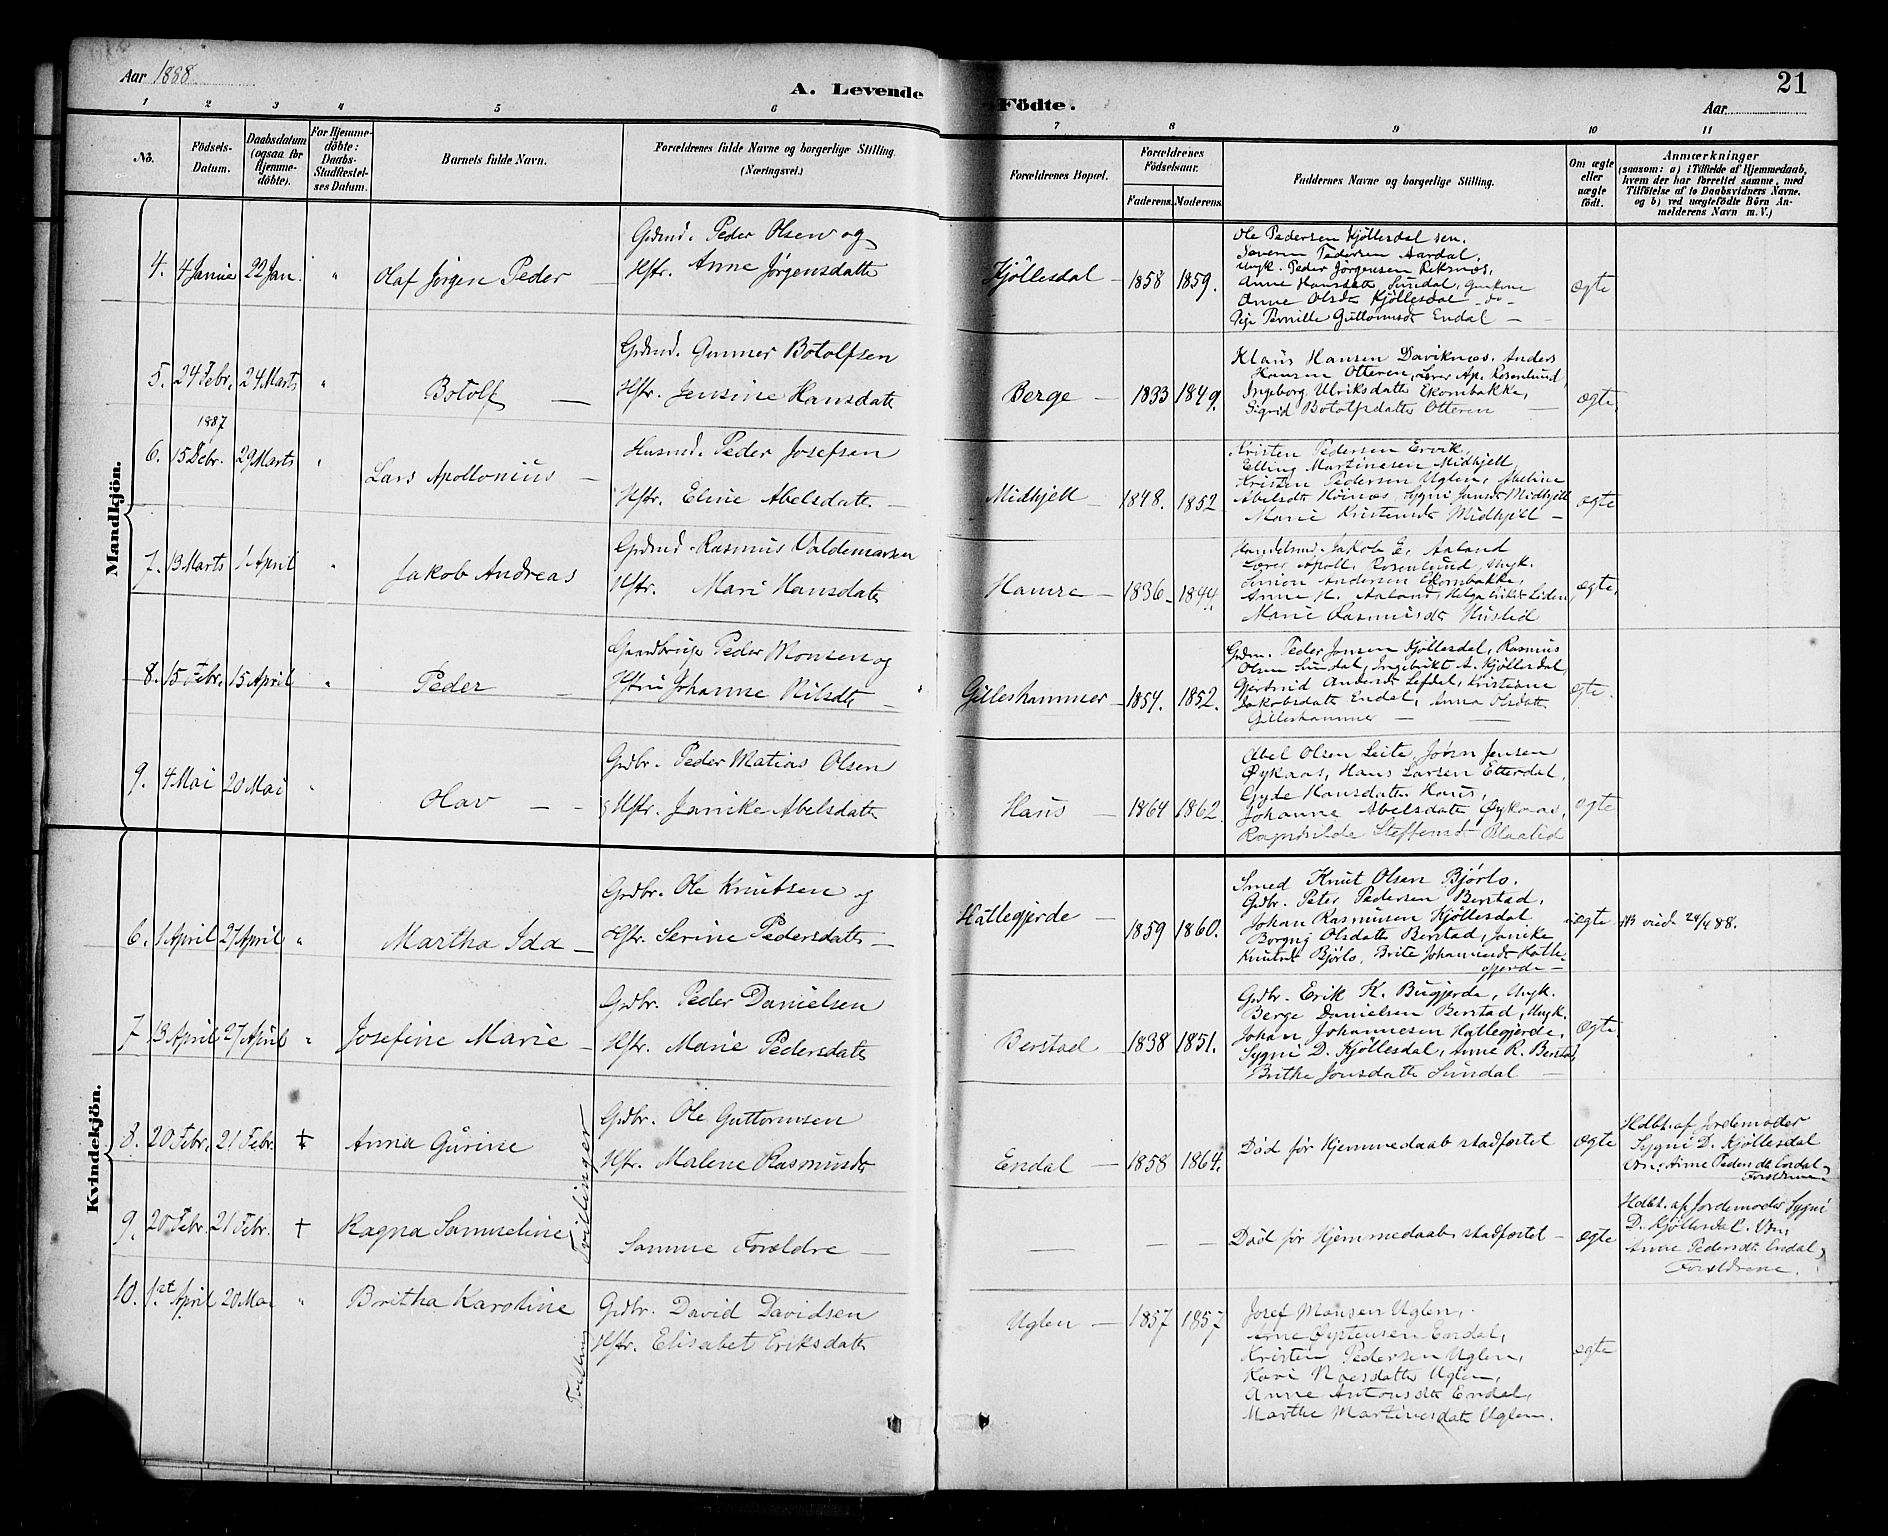 Aar 1888
A. Levende Födte.
21
Aar
1 2 3 4 5 6 7 8 9 10 11
No.
Födsels-Datum.
Daabsdatum (ogsaa for Hjemme-döbte).
For Hjemme-döbte: Daabs-Stadfæstel-ses Datum.
Barnets fulde Navn.
Forældrenes fulde Navne og borgerlige Stilling.
(Næringsvei.)
Forældrenes Bopæl.
Forældrenes Födselsaar.
Faderens. Moderens.
Faddernes Navne og borgerlige Stilling.
Om ægte eller uægte födt.
Anmærkninger
(saasom: a) i Tilfælde af Hjemmedaab,
hvem der har forrettet samme, med
Tilföielse af to Daabsvidners Navne.
og b) ved uægtefödte Börn An-
melderens Navn m. V.)
Mandkjön.
4. 4 Januar 22 Jan. " Olaf Jørgen Peder
Grdmd. Peder Olsen og
Hstr. Anne Jørgensdatter
Kjöllesdal — 1858 1859.
Ole Pedersen Kjöllesdal sen.
Severin Pedersen Aardal,
Ungk. Peder Jörgensen Reksnæs,
Anne Hansdatt Sundal,
Anne Olsdt Kjöllesdal — do —
Pige Pernille Guttormsdt Endal —
ægte
5. 24 Febr. 24 Marts " Botolf —
Grdmd. Gunner Botolfsen
Hstr. Jensine Hansdatt
Berge — 1833 1849.
Klaus Hansen Daviknæs, Anders
Hansen Otteren, Lærer Ap. Rosenlund,
Ingeborg Ulriksdatt Ekornbakke,
Sigrid Botolfsdatter Otteren —
ægte,
1887
6. 15 Debr. 29 Marts " Lars Apollonius —
Husmd. Peder Josefsen
Hstr. Eline Abelsdatt —
Midhjell — 1848. 1852
Kristen Pedersen Ervik,
Elling Martinusen Midhjell,
Kristen Pedersen Uglen, Abeline
Abelsdt Hoinæs, Sygni Jansdt Midhjell
Marie Kristensdt Midhjell —
ægte
7. 13 Marts 1 April " Jakob Andreas
Grdmd. Rasmus Valdemarsen
Hstr. Mari Hansdatt
Hamre — 1836 — 1844.
Handelsmd. Jakob E. Aaland
Lærer Apoll. Rosenlund, Ungk.
Simon Andersen Ekornbakke,
Anne H. Aaland,
Marie Rasmusdt Huslid
ægte,
8. 15 Febr. 15 April " Peder —
Gaardbruger Peder Monsen og
Hstru Johanne Nilsdt —
Gilleshammer — 1854. 1852.
Grdm. Peder Jensen Kjöllesdal, Rasmus
Olsen Sundal, Ingebrikt A. Kjöllesdal,
Gjertrud Andersdt Lefdal, Kristiane
Jakobsdatt Endal, Anna Olsdatt
Gilleshammer —
ægte.
9. 4 Mai 20 Mai " Olav — —
Grdbr. Peder Matias Olsen
Hstr. Janike Abelsdatt
Haus — 1864 1862.
Abel Olsen Leite, Jörn Jensen
Øykaas, Hans Larsen Etterdal,
Gyde Hansdatt Haus,
Johanne Abelsdatt Øykaas,
Ragndvilde Steffensdt Blaalid
ægte
Kvindekjön.
6. 1 April 27 April " Martha Ida —
Grdbr. Ole Knutsen og
Hstr. Serine Pedersdatt —
Hattegjerde — 1859 1860.
Smed Knut Olsen Björlo,
Grdbr. Peter Pedersen Berstad,
Johan Rasmusen Kjöllesdal
Borgny Olsdatt Berstad, Janike
Knutsdt Björlo, Brite Johannesdt Hatte-
gjerde —
ægte 24/4 88.
7 13 April 27 April " Josefine Marie —
Grdbr. Peder Danielsen
Hstr. Marie Pedersdatt
Berstad — 1838 1851.
Grdbr. Erik K. Bugjerde, Ungk.
Berge Danielsen Berstad, Ungk.
Johan Johannesen Hattegjerde,
Sygni D. Kjöllesdal, Anne R. Berstad,
Brithe Jonsdatt Sundal —
ægte.
8. 20 Febr. 21 Febr. + Anna Gurine
Tvillinger
Grdbr. Ole Guttormsen
Hstr. Malene Rasmusdt
Endal — 1858 1864.
Död för Hjemmedaab stadfæstet
ægte
Hdbt. af Jordemoder
Sygni D. Kjöllesdal
Vn: Anne Pedersdt Endal,
Forældrene
9. 20 Febr. 21 Febr. + Ragna Samueline
Samme Forældre —
— — —
Död för Hjemmedaab stadfæstet —
ægte
Hdbt. af Jordemoder Sygni
D. Kjöllesdal. Vn:
Anne Pedersdt Endal,
Forældrene.
10. 1st April 20 Mai " Britha Karoline
Grdbr. David Davidsen
Hstr. Elisabet Eriksdatt
Uglen — 1857 1857
Josef Monsen Uglen,
Arne Øystensen Endal,
Kristen Pedersen Uglen,
Kari Naesdatt Uglen,
Anne Antonsdt Endal,
Marthe Martinesdatt Uglen.
ægte